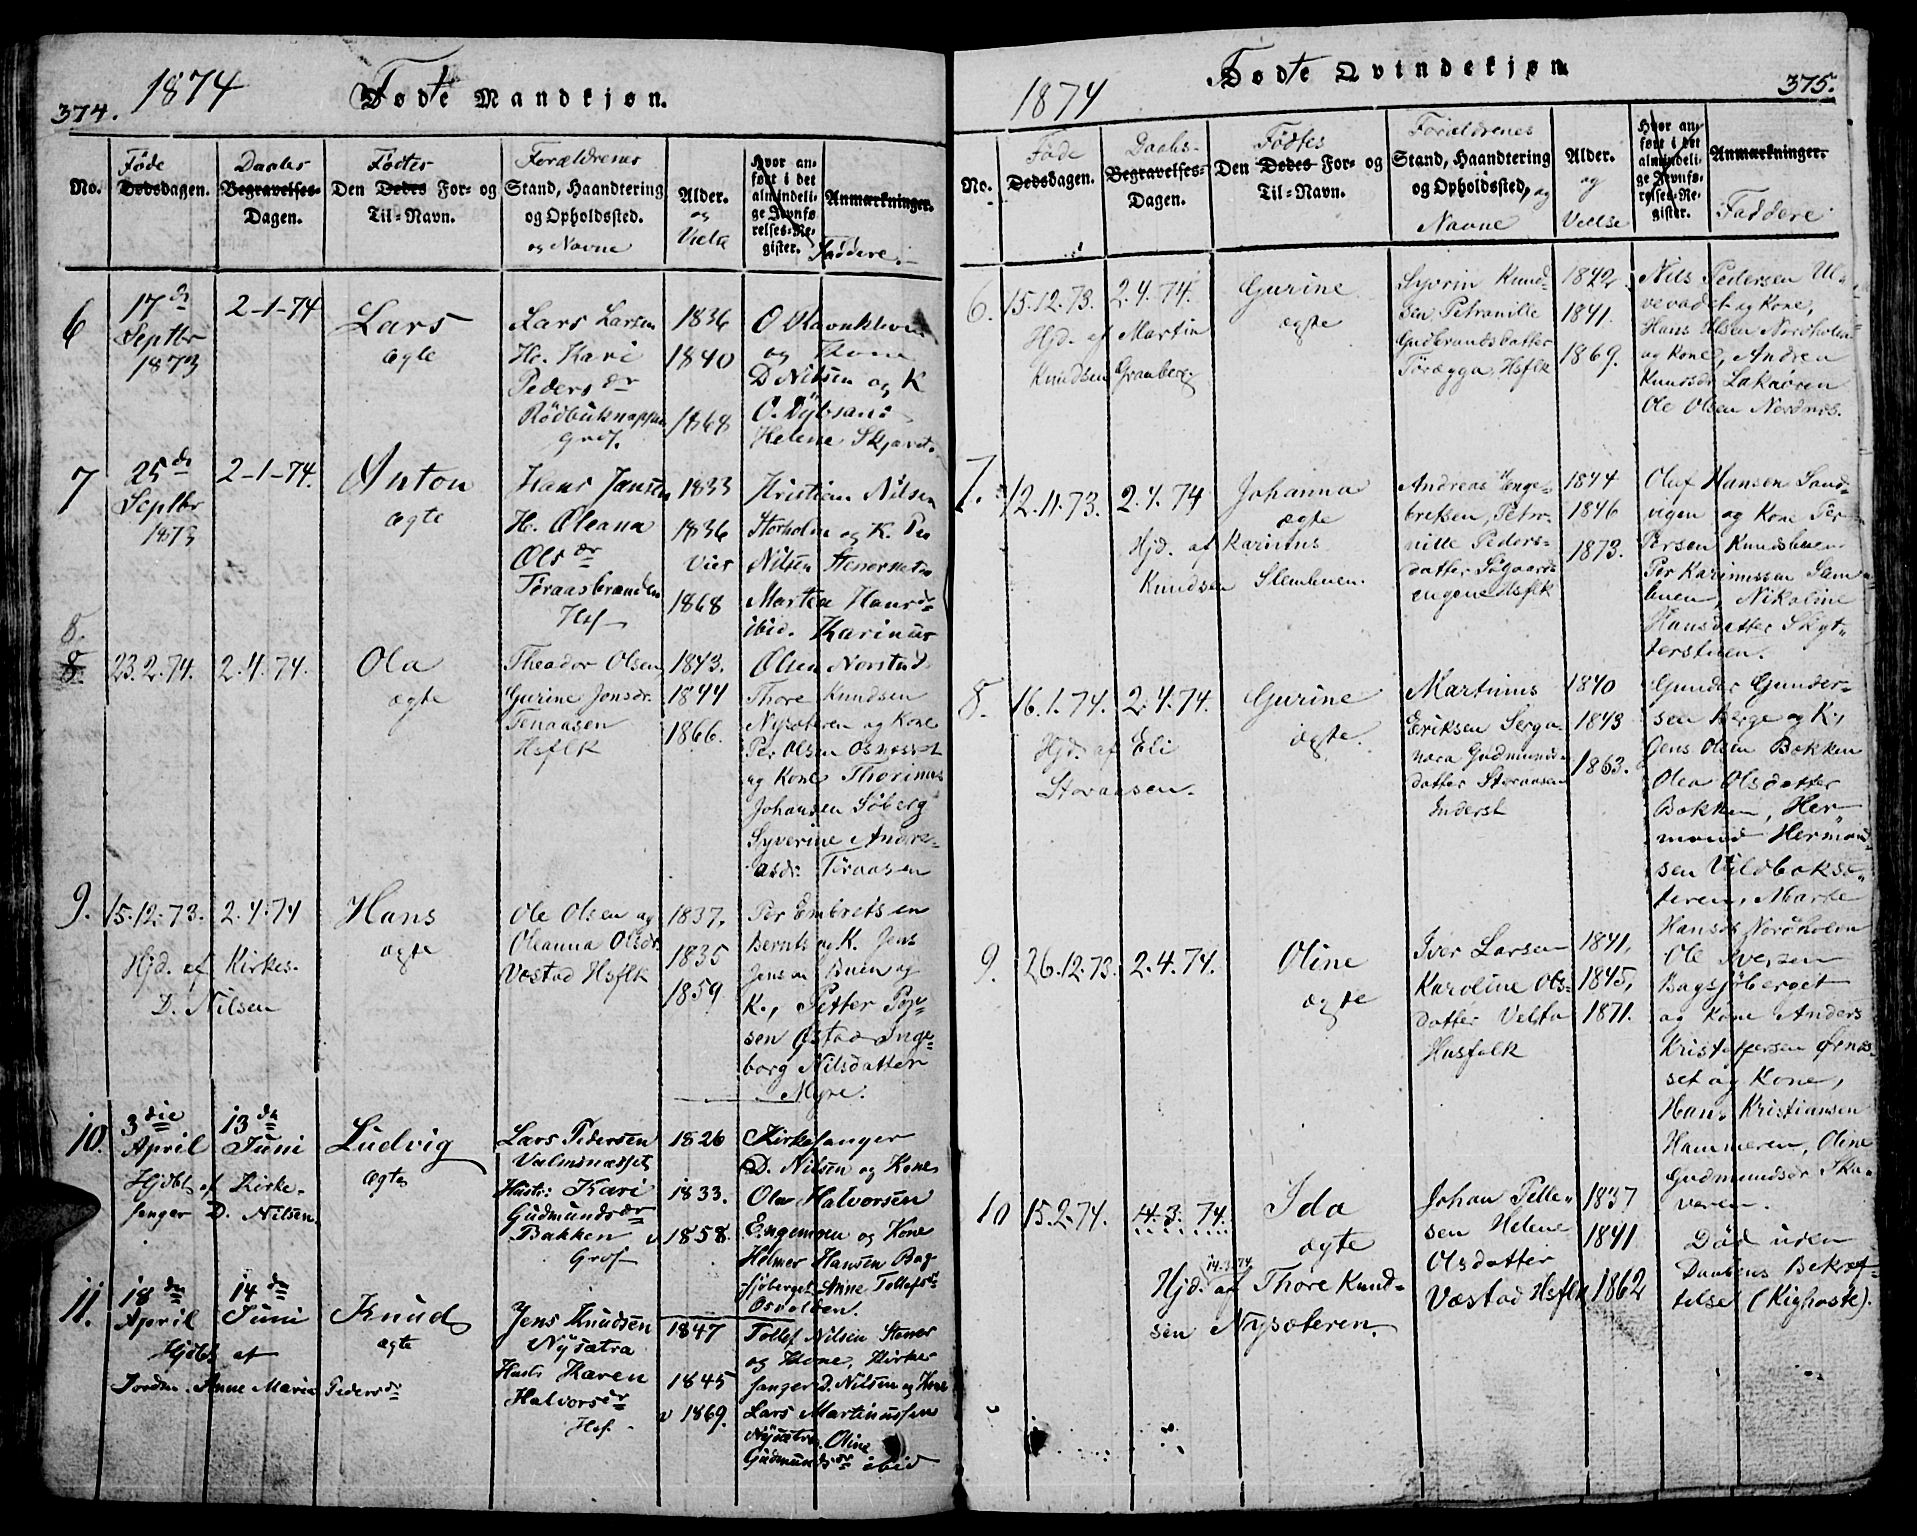 374.
1874
Fødte Mandkjøn.
No.
Føde
Dødsdagen.
Daabs
Begravelses-
Dagen.
Fødtes
Den Dødes For- og
Til-Navn.
Forældrenes
Stand, Haandtering
og Opholdssted.
og Navne
Alder.
og
Hvor an-
ført i det
almindeli-
ge Jevnfø
relses-Re-
gister.
Anmærkninger.
Faddere.
6
17de
Septbr
1873
2-1-74
Lars
ægte
Lars Larsen
H. Kari
Pedersdr
1836
1840
1868
og Kone
D Nilsen og K
Helene
7
25de
Septbr
1873
2-1-74.
Anton
ægte
Hans Jansen
H. Oleana
Olsdr
Hsf
1833
1836
Vies
1868
Kristian Nilsen
Storholm og K.
Nilsen
Martea Hansdr
ibid. Karinus
Olsen Norstad
8.
8
23.2.74.
2.4.74.
Ola
ægte
Theodor Olsen
Gurine Jonsdr.
Hsflk
1843.
1844
1866.
Thore Knudsen
Nysæteren og Kone
Per Olsen Osnesset
og Kone Thorinus
Johansen Søberg
Syverine Andre-
asdr. Toraasen
9.
15.12.73.
2.4.74
Hans
ægte
Hjd. af Kirkes.
D. Nilsen
Ole Olsen og
Oleanna Olsdr.
Væstad Hsflk
1837.
1835
1859
Per Embretsen
Bernts og K. Jens
Jensen Buen og
K., Petter
sen Østad Inge-
borg Nilsdatter
Myre.
10.
3die
April
13de
Juni
Ludvig
ægte
Hjdbt af Kirke-
sanger D. Nilsen
Lars Pedersen
Valmsnæsset
Hustr: Kari
Gudmundsdr
Bakken
1826
1833.
v 1858.
Kirkesanger
D. Nilsen og Kone
Olav Halvorsen
Engemoen og Kone
Helmer Hansen Bag-
sjøberget Anne Tollefsdr
11.
18de
April
14de
Juni
Knud
ægte
Hjdbt af
Jordm. Anne Marie Pedersdr
Jens Knudsen
Nysætra
Hustr Karen
Halvorsdr
Hsf.
1847
1845
v 1869.
Tollef Nilsen
og Kone, Kirke-
sanger D. Nilsen og Kone
Lars Martinussen
Nysætra, Oline
Gudmundsdr ibid
1874
Fødte Qvindekjøn
375.
No.
Føde
Dødsdagen.
Daabs-
Begravelses-
Dagen.
Fødtes
Den Dødes For- og
Til-Navn.
Forældrenes
Stand, Haandtering
og Opholdssted, og
Navne
Alder.
og
Vielse
Hvor an-
ført i det
almindeli-
ge Jevnfø-
relses-Re-
gister.
Anmærkninger.
Faddere
6.
15.12.73.
2.4.74.
Gurine
ægte
Hjd. af Martin
Knudsen Granberg
Syvrin Knud-
sen Petronille
Gudbrandsdatter
Hsflk
1842.
1841.
1869.
Nils Pedersen
og Kone,
Hans Olsen Nordholm
og Kone, Andrea
Knutsdr
Ole Olsen Nordnes.
7.
12.11.73.
2.4.74
Johanna
ægte
Hjd. af Karinus
Knudsen Slembuen.
Andreas Enge-
bretsen, Petro-
nille Peders-
datter Søgaards
engene Hsflk
1844
1846
1873.
Olaf Hansen Sand-
vigen og Kone Per
Persen Knudsbuen
Per Karinussen Slem
buen, Nikoline
Hansdatter Skyt-
terstuen.
8.
16.1.74.
2.4.74.
Gurine
ægte.
Hjd. af Eli
Storaasen.
Martinus
Eriksen
Gudmunds-
datter Storaasen
Inderst
1840
1843
1863.
Gunder Gunder-
sen Berge og K,
Jens Olsen Bakken
Olea Olsdatter
Bakken, Her-
mand Hermand-
sen Vildboksæ-
teren, Marte
Hansdr Nordholm
9.
26.12.73.
2.4.74.
Oline
ægte
Iver Larsen
Karoline Ols-
datter Velta
Husfolk
1841,
1845,
1871.
Ole Iversen
Bagsjøberget
og Kone Anders
Kristoffersen Ørnæs-
set og Kone,
Hans Kristiansen
Hammeren, Oline
Gudmundsdr Ska-
veren.
10
15.2.74.
14.3.74.
Ida
ægte
14.3.74
Hjd. af Thore Knud-
sen Nysæteren.
Johan Pelle-
sen Helene
Olsdatter
Væstad Hsflk
1837
1841
1862
Død uden
Daabens Bekræf-
telse (Kighoste).